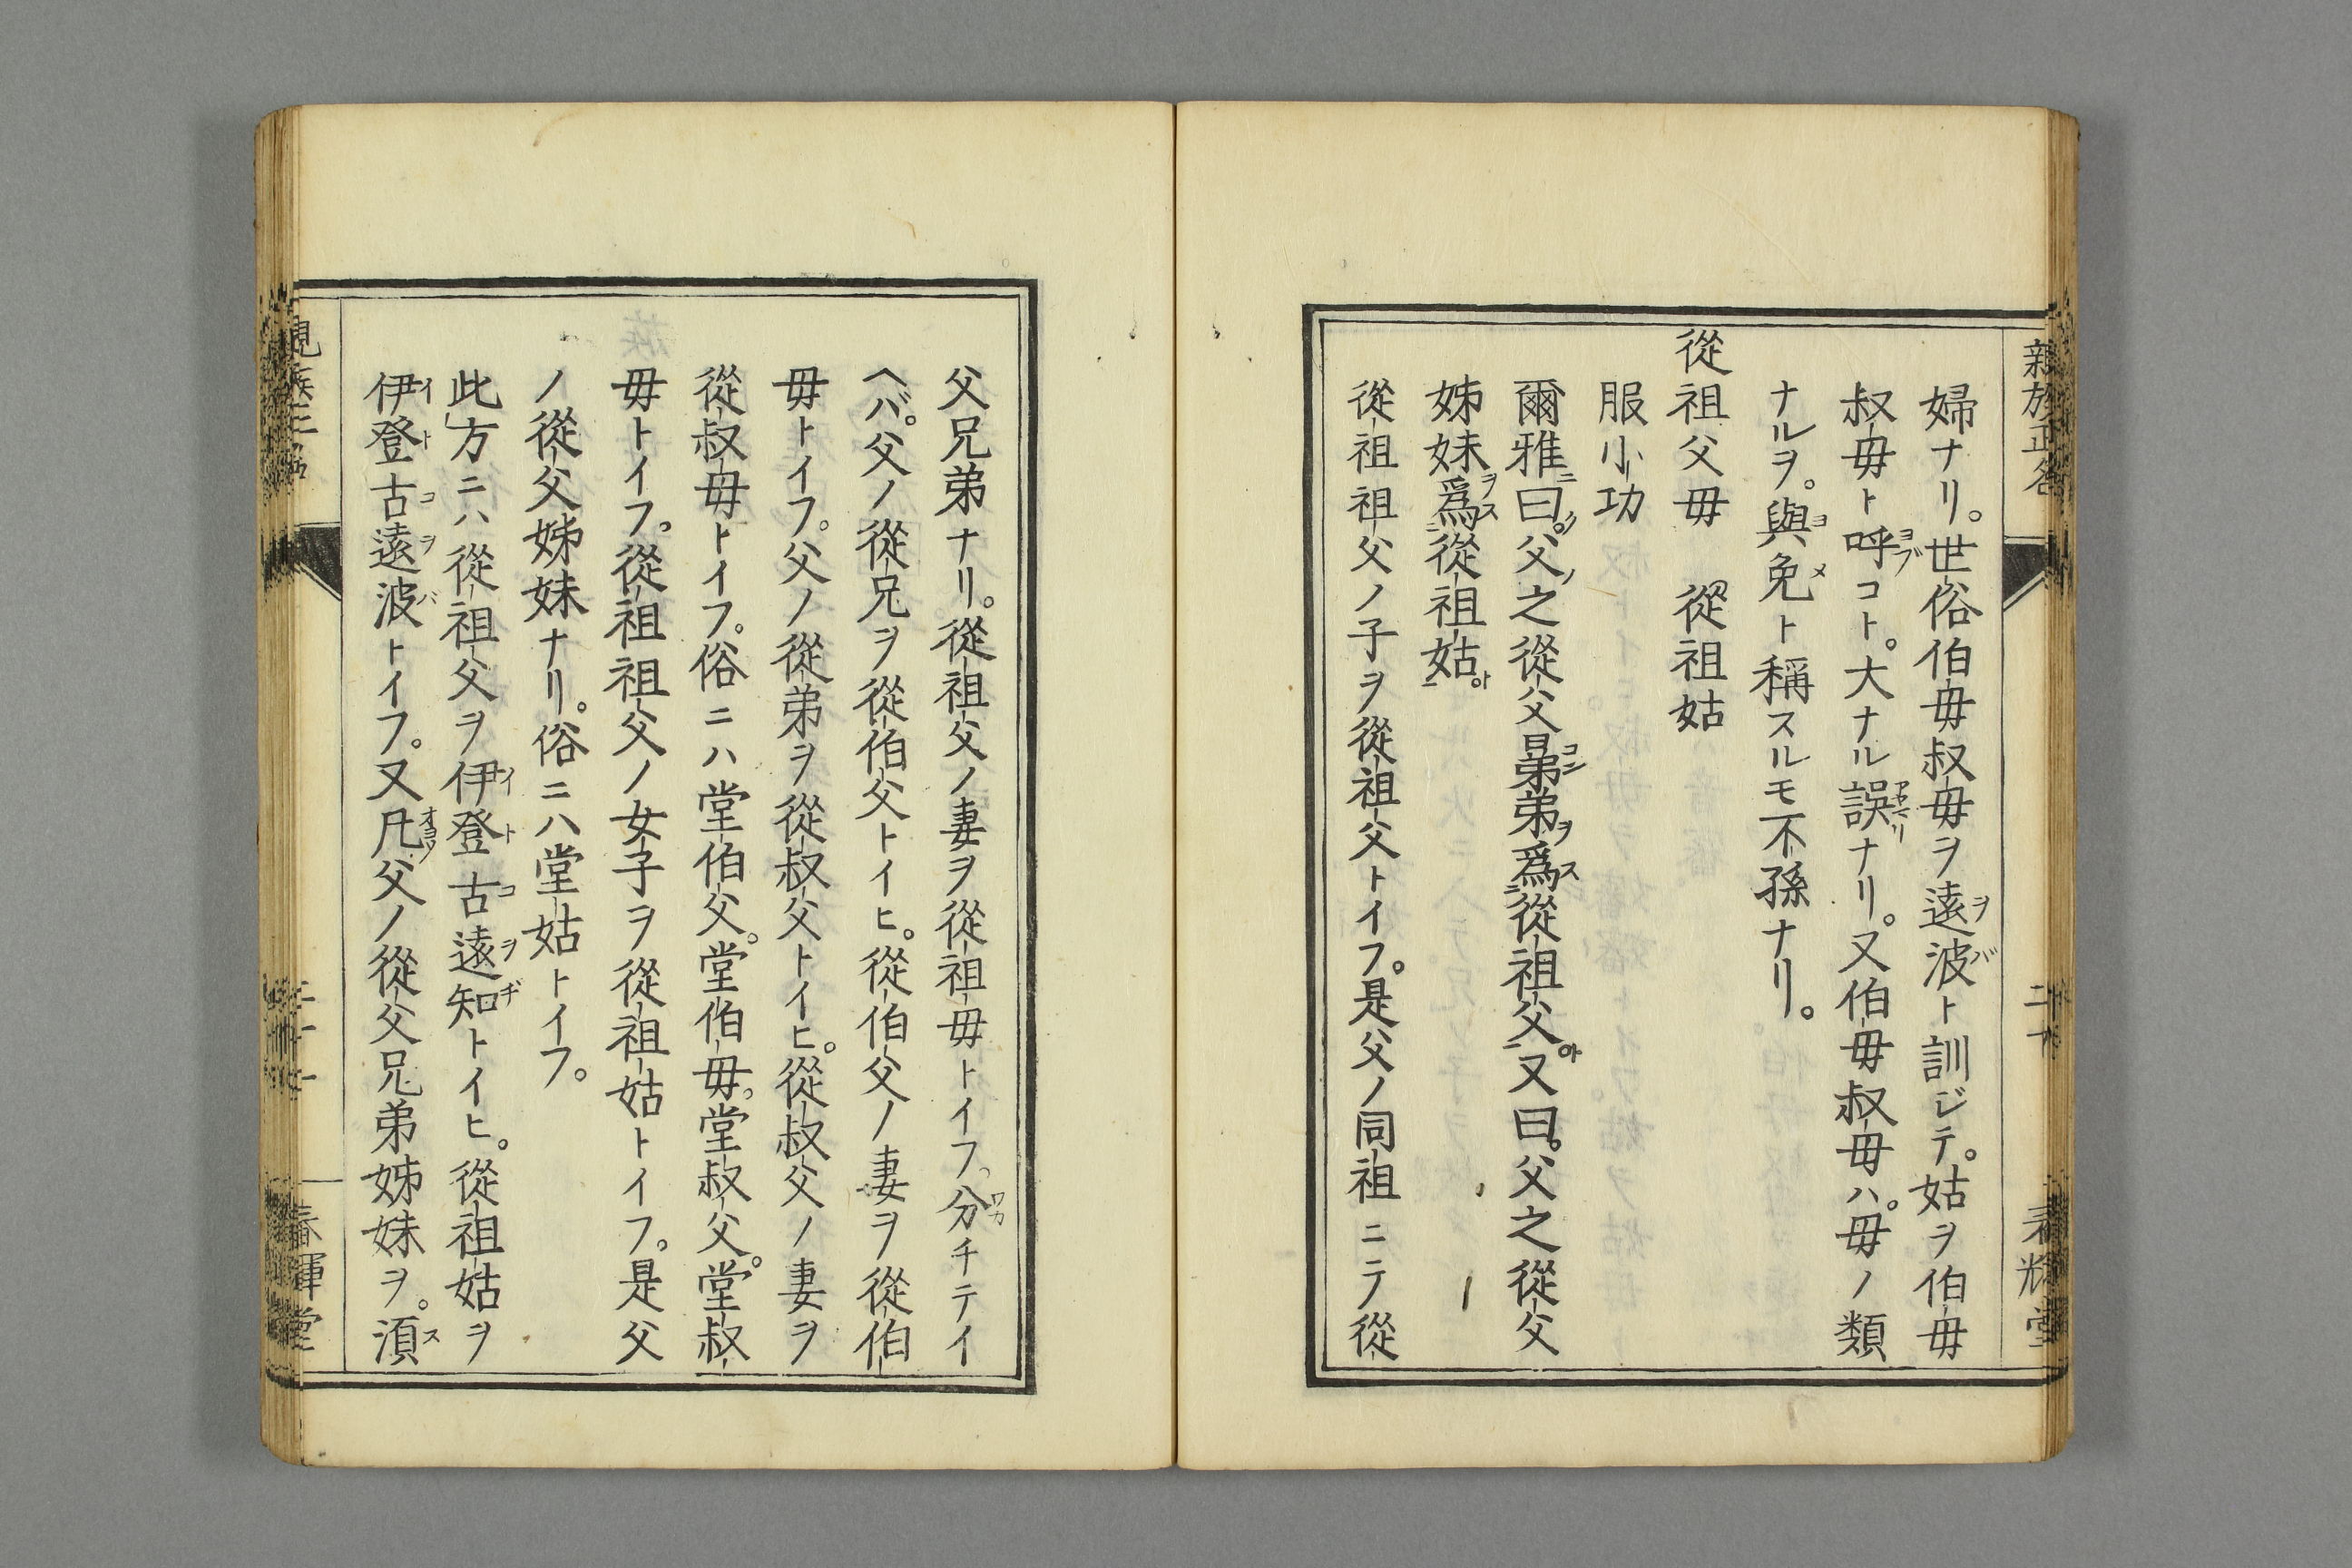 婦ナリ。世俗伯母叔母ヲ遠波ト訓ジテ。姑ヲ伯母
叔母ト呼コト。大ナル誤ナリ。又伯母叔母ハ。母ノ類
ナルヲ。與免ト稱スルモ不孫ナリ。
從祖父母　從祖姑
服小功
爾雅曰。父之從父晜弟爲從祖父。又曰。父之從父
姊妹爲從祖姑。
從祖祖父ノ子ヲ從祖父トイフ。是父ノ同祖ニテ從
父兄弟ナリ。從祖父ノ妻ヲ從祖母トイフ。分チテイ
ヘバ。父ノ從兄ヲ從伯父トイヒ。從伯父ノ妻ヲ從伯
母トイフ。父ノ從弟ヲ從叔父トイヒ。從叔父ノ妻ヲ
從叔母トイフ。俗ニハ堂伯父。堂伯母。堂叔父。堂叔
母トイフ。從祖祖父ノ女子ヲ從祖姑トイフ。是父
ノ從父姊妹ナリ。俗ニハ堂姑トイフ。
此方ニハ從祖父ヲ伊登古遠知トイヒ。從祖姑ヲ
伊登古遠波トイフ。又凡父ノ從父兄弟姊妹ヲ。湏
春暉堂